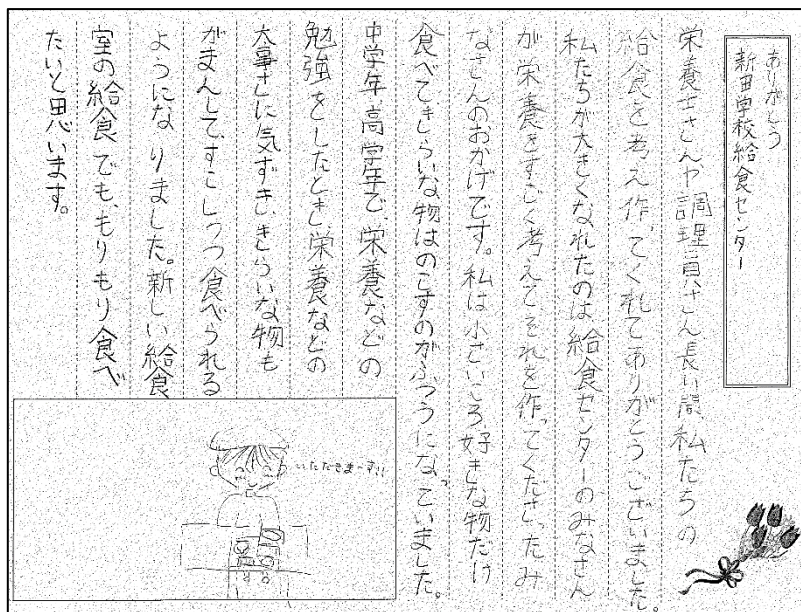 ありがとう
新田学校給食センター
栄養士さんや調理員さん長い間私たちの
給食を考え作ってくれてありがとうございました。
私たちが大きくなれたのは給食センターのみなさん
が栄養をすごく考えてそれを作ってくださったみ
なさんのおかげです。私は小さいころ好きな物だけ
食べて、きらいな物はのこすのがふつうになっていました。
中学年、高学年で、栄養などの
勉強をしたとき栄養などの
大事さに気ずき、きらいな物も
がまんして、すこしづつ食べられる
ようになりました。新しい給食
室の給食でも、もりもり食べ
たいと思います。
いただきまーす!!